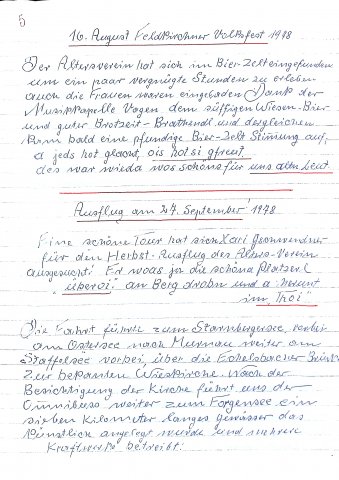 5
16. August Feldkirchner Volksfest 1978
Der Altersverein hat sich im Bier-Zelt eingefunden
um ein paar vergnügte Stunden zu erleben
auch die Frauen waren eingeladen Dank der
Musikkapelle Vagen dem süffigen Wiesen-Bier
und guter Brotzeit-Brathendl und dergleichen
kam bald eine pfundige Bier-Zelt Stimmung auf,
a jeds hot glacht, ois hot si gfreut,
des war wieda was schöns für uns alten Leut.
Ausflug am 27. September 1978
Eine schöne Tour hat sich Xari
für den Herbst-Ausflug des Alters-Verein
ausgesucht! Er woas ja die schöna Platzerl
"überoi" am Berg drobn und a herunt
im "Thoi"
Die Fahrt führte zum Starnbergersee, vorbei
am Ostersee nach Murnau weiter am
Staffelsee vorbei, über die Echelsbacher Brücke
zur bekannten Wieskirche. Nach der
Besichtigung der Kirche führt uns der
Omnibus weiter zum Forgensee ein
sieben Kilometer langes gewässer das
künstlich angelegt wurde und mehrere
Kraftwerke betreibt.